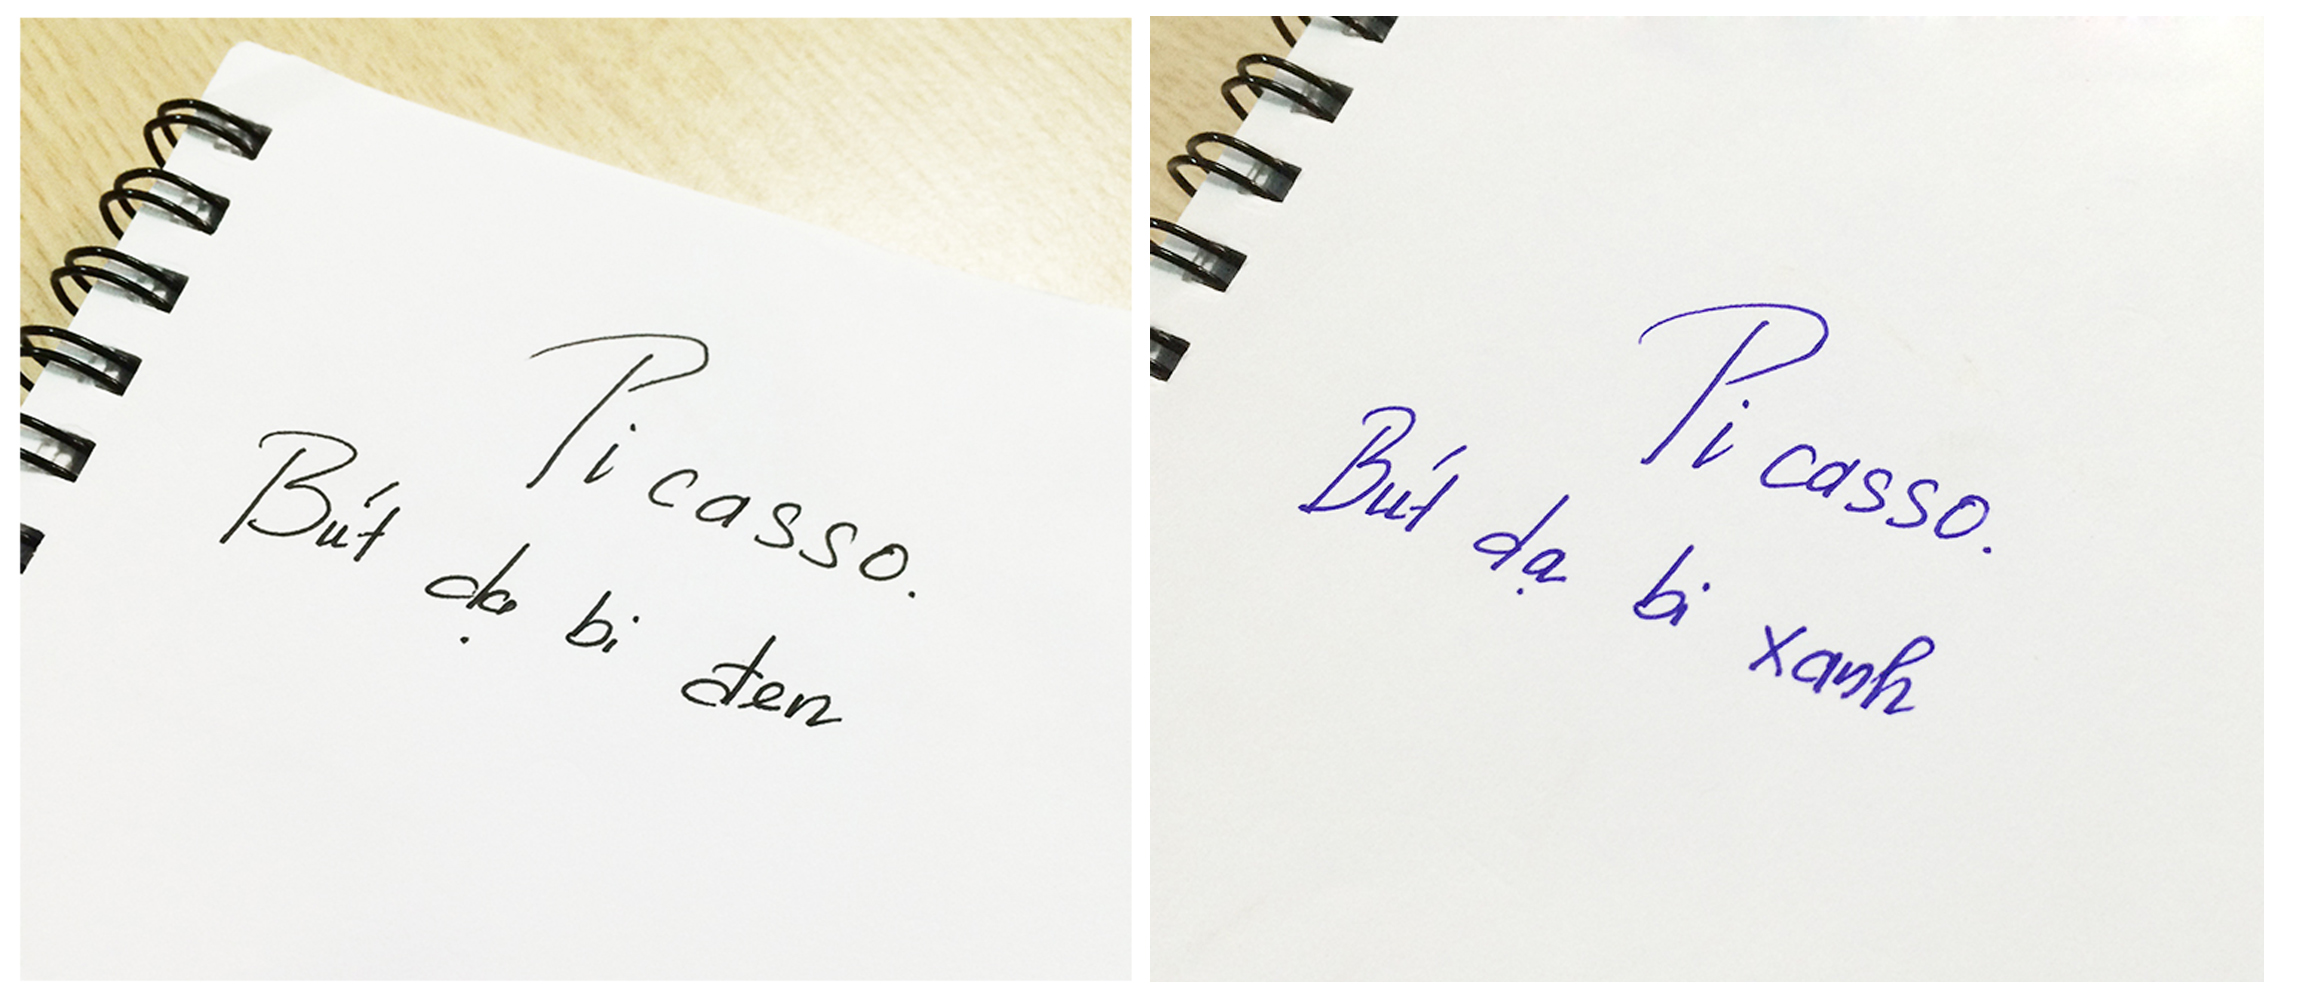 Picasso.
Bút dạ bi đen
Picasso.
Bút dạ bi xanh